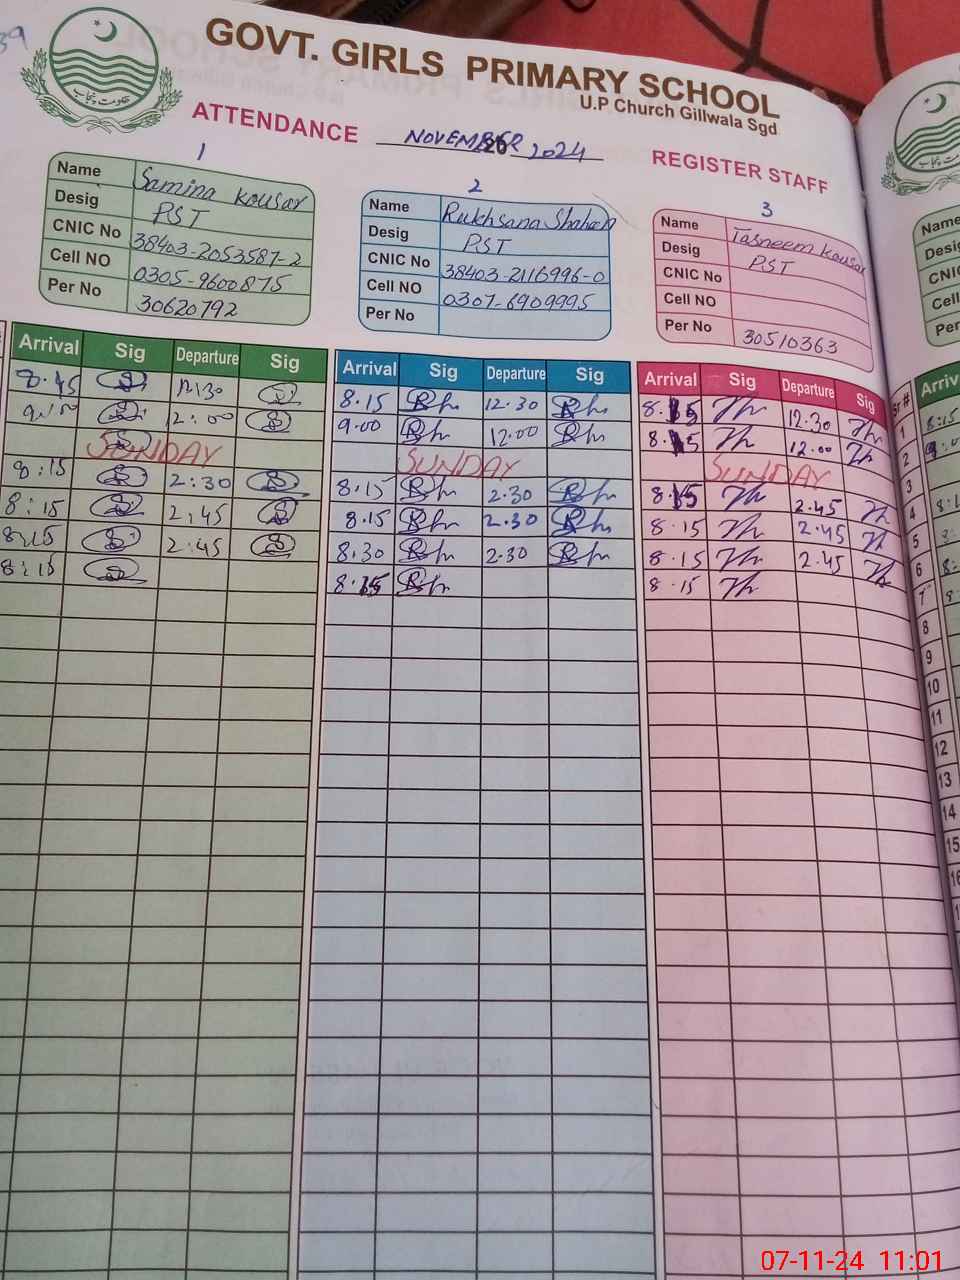 39
GOVT. GIRLS PRIMARY SCHOOL
U.P Church Gillwala Sgd.
حکومت پنجاب
ATTENDANCE NOVEMBER 20 2024 REGISTER STAFF
1
Name Samina Kousar
Desig PST
CNIC No 38403-2053587-2
Cell NO 0305-9600875
Per No 30620792
2
Name Rukhsana Shaheen
Desig PST
CNIC No 38403-2116996-0
Cell NO 0307-6909995
Per No
3
Name Tasneem Kousar
Desig PST
CNIC No
Cell NO
Per No 30510363
Name
Desig
CNIC
Cell
Per No
Arrival Sig Departure Sig Arrival Sig Departure Sig Arrival Sig Departure Sig Sr # Arriv
8.45 12:30 8.15 12.30 8.15 12.30 1 8:15
9:00 12:00 9.00 12.00 8.15 12.00 2
SUNDAY SUNDAY SUNDAY 3
8:15 2:30 8.15 2.30 8.15 2.45 4
8:15 2:45 8.15 2.30 8.15 2.45 5
8:15 2:45 8.30 2.30 8.15 2.45 6
8:15 8.15 8.15 7
8
9
10
11
12
13
14
15
07-11-24 11:01